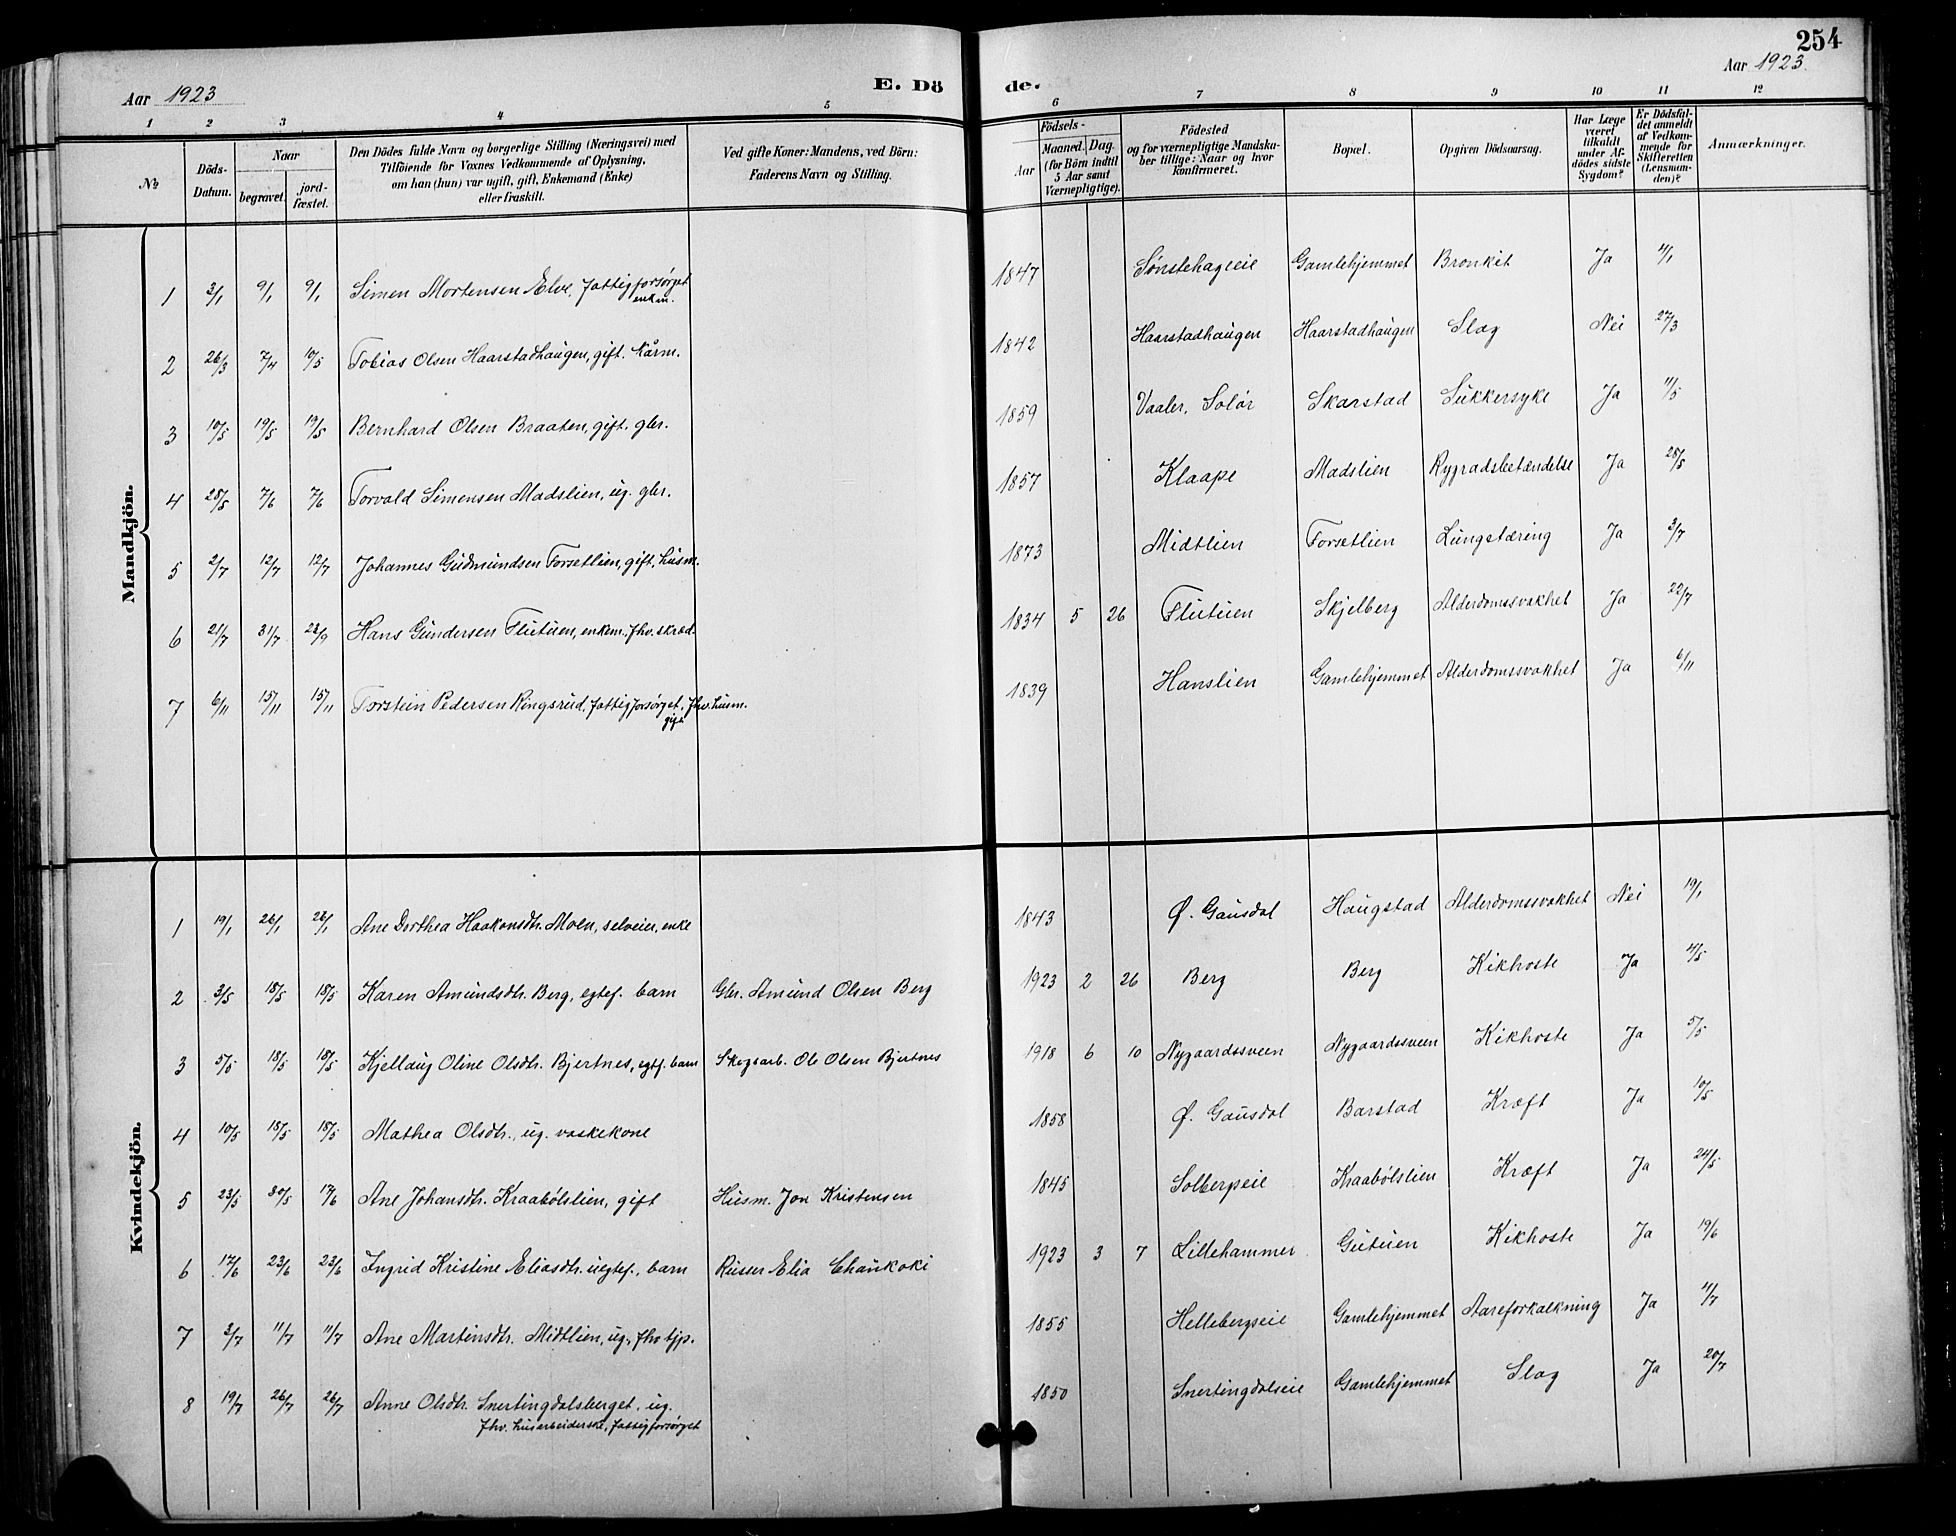 254
Aar 1923
E. Dö
de.
Aar 1923.
1 2 3 4 5 6 7 8 9 10 11 12
No
Döds-Datum.
Naar
begravet.
jord-fæstet.
Den Dödes fulde Navn og borgerlige Stilling (Næringsvei) med
Tilföiende for Voxnes Vedkommende af Oplysning,
om han (hun) var ugift, gift, Enkemand (Enke)
eller fraskilt.
Ved gifte Koner: Mandens, ved Börn:
Faderens Navn og Stilling.
Födsels-
Aar
Maaned. Dag.
(for Börn indtil
5 Aar samt
Værnepligtige).
Födested
og for værnepligtige Mandska-
ber tillige: Naar og hvor
konfirmeret.
Bopæl.
Opgiven Dödsaarsag.
Har Læge
været
tilkaldt
under Af-
dödes sidste
Sygdom?
Er Dödsfal-
det anmeldt
af Vedkom-
mende for
Skifteretten
(Lensman-
den)?
Anmærkninger.
Mandkjön.
1 3/1 9/1 9/1 Simen Mortensen Elve, fattigforsørget enkem. 1847 Sønstehageeie Gamlehjemmet Bronkit Ja 4/1
2 26/3 7/4 10/5 Tobias Olsen Haarstadhaugen, gift. Kårm. 1842 Haarstadhaugen Haarstadhaugen Slag Nei 27/3
3 10/5 19/5 19/5 Bernhard Olsen Braaten, gift. gbr. 1859 Vaaler, Solør Skarstad Sukkersyke Ja 11/5
4 28/5 7/6 7/6 Torvald Simensen Madslien, ug. gbr. 1857 Klaape Madslien Rygradsbetændelse Ja 28/5
5 2/7 12/7 12/7 Johannes Gudmundsen Forsetlien, gift, husm. 1873 Midtlien Forsetlien Lungetæring Ja 3/7
6 21/7 31/7 23/9 Hans Gundersen Flutuen, enkem. fhv. skræd. 1834 5 26 Flutuen Skjelberg Alderdomssvakhet Ja 22/7
7 6/11 15/11 15/11 Torstein Pedersen Ringsrud, fattigforsørget, fhv. husm. gift 1839 Hanslien Gamlehjemmet Alderdomssvakhet Ja 6/11
Kvindekjön.
1 19/1 26/1 26/1 Ane Dorthea Haakonsdtr. Moen, selveier, enke 1843 Ø. Gausdal Haugstad Alderdomssvakhet Nei 19/1
2 3/5 18/5 18/5 Karen Amundsdtr. Berg, egtef. barn Gbr. Amund Olsen Berg 1923 2 26 Berg Berg Kikhoste Ja 4/5
3 5/5 18/5 18/5 Kjellaug Oline Olsdtr. Bjertnes, egtf. barn Skogsarb. Ole Olsen Bjertnes 1918 6 10 Nygaardssveen Nygaardssveen Kikhoste Ja 5/5
4 10/5 18/5 18/5 Mathea Olsdtr., ug. vaskekone 1858 Ø. Gausdal Barstad Kræft Ja 10/5
5 23/5 30/5 17/6 Ane Johansdtr. Kraabølslien, gift Husm. Jon Kristensen 1845 Solbergeie Kraabølslien Kræft Ja 24/5
6 17/6 23/6 23/6 Ingrid Kristine Eliasdtr. uegtef., barn Russer Elia Chaukoki 1923 3 7 Lillehammer Gutuen Kikhoste Ja 19/6
7 3/7 11/7 11/7 Ane Martinsdtr. Midtlien, ug., fhv tjp. 1855 Hellebergseie Gamlehjemmet Aareforkalkning Ja 11/7
8 19/7 26/7 26/7 Anne Olsdtr. Snertingdalsberget, ug. 1850 Snertingdalseie Gamlehjemmet Slag Ja 20/7
fhv. husarbeiderske, fattigforsørget